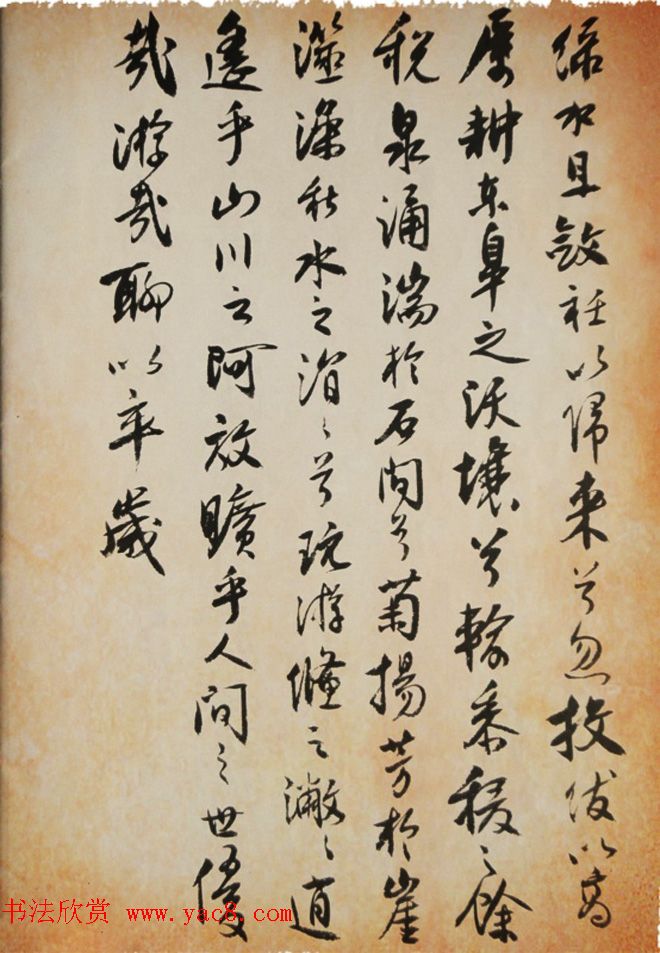 綠水且斂衽以歸来兮忽投紱以高
厲耕東皋之沃壤兮輸黍稷之餘
税泉涌湍於石間兮菊揚芳於崖
澨澡秋水之涓〻兮玩游鯈之潎〻逍
遥乎山川之阿放曠乎人間之世優
哉游哉聊以卒歲
书法欣赏 www.yac8.com